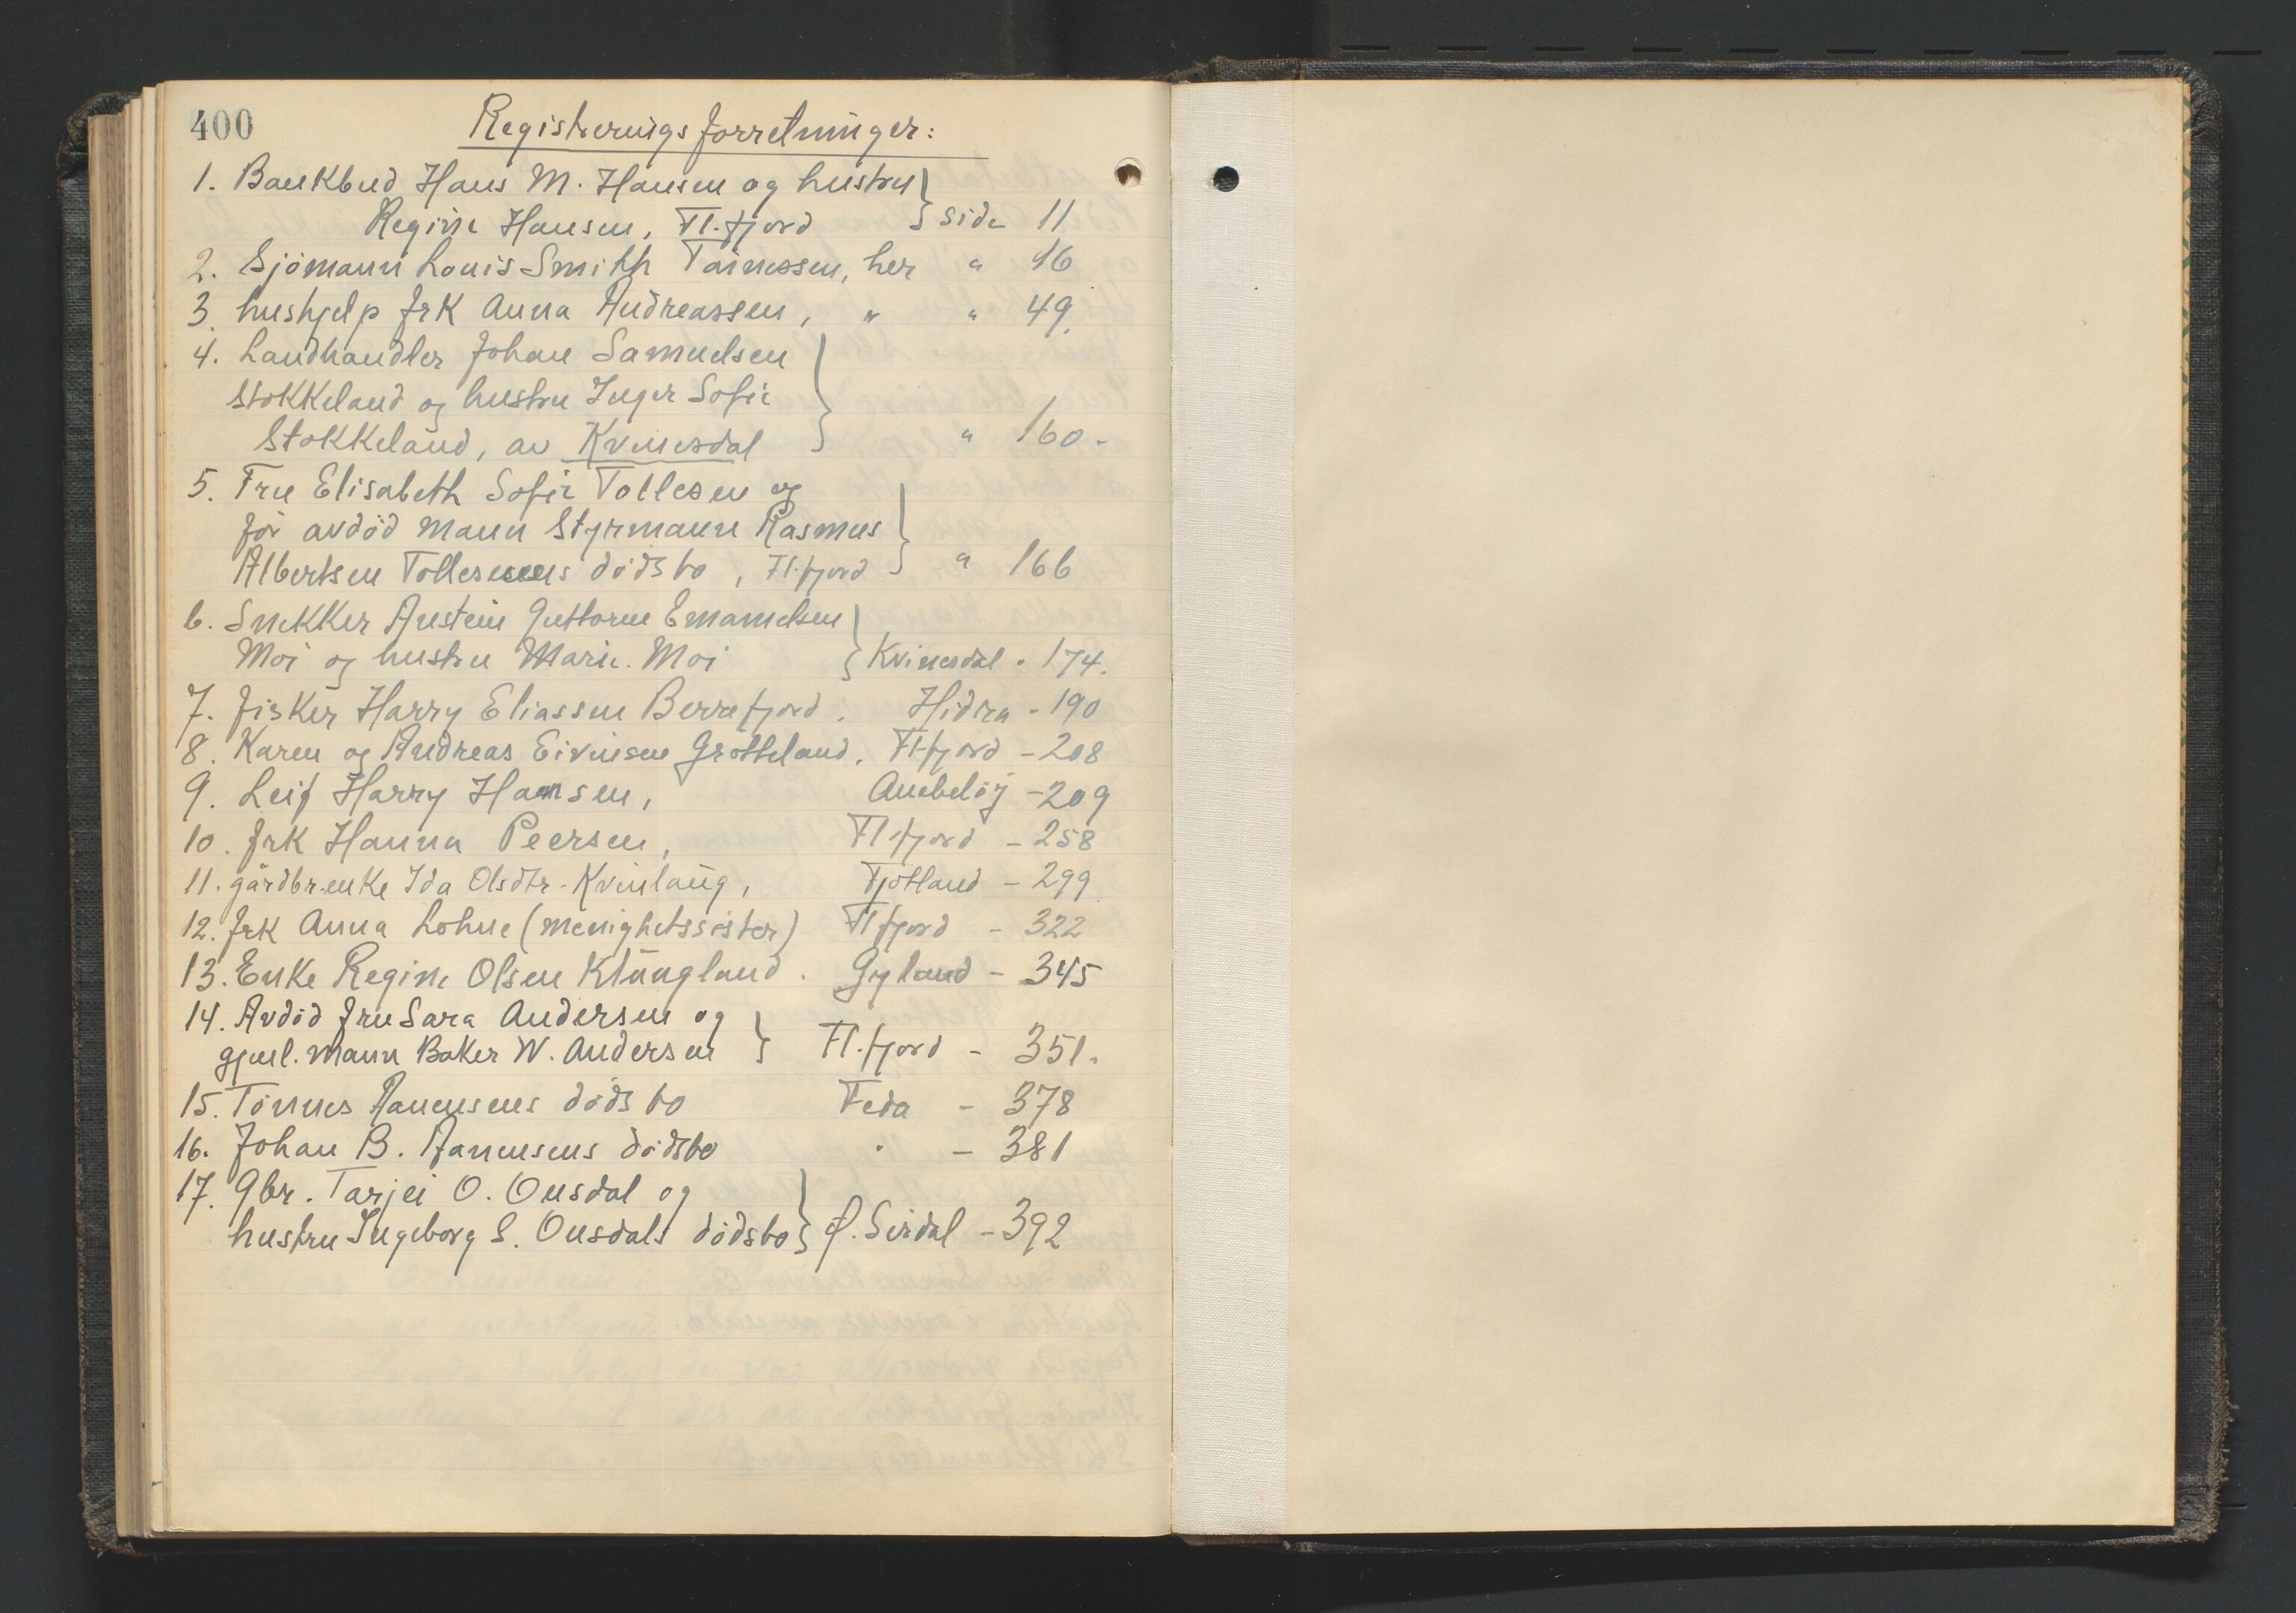 400
Registreringsforretninger:
1. Bankbud Hans M. Hansen og hustru
Regine Hansen, Fl.fjord } side 11
2. Sjømann Louis Smith Tønnessen, her " 16
3. hushjelp frk Anna Andreassen, " " 49.
4. Landhandler Johan Samuelsen
Stokkeland og hustru Inger Sofie
Stokkeland, av Kvinesdal } " 160-
5. Fru Elisabeth Sofie Tollesen og
før avdød mann Styrmann Rasmus
Albertsen Tollesens dødsbo, Fl.fjord } " 166
6. Snekker Austein Guttorm Emanuelsen
Moi og hustru Marie Moi } Kvinesdal - 174.
7. fisker Harry Eliassen Berrefjord. Hidra - 190
8. Karen og Andreas Eivinsen Grøtteland. Fl.fjord - 208
9. Leif Harry Hansen, Anabeløy - 209
10. frk Hanna Peersen, Fl.fjord - 258
11. gårdbr.enke Ida Olsdtr. Kvinlaug, Fjotland - 299
12. frk Anna Lohne (menighetssøster) Fl.fjord - 322
13. Enke Regine Olsen Klungland. Gyland - 345
14. Avdød fru Sara Andersen og
gjenl. mann Baker W. Andersen } Fl.fjord - 351.
15. Tønnes Aanensens dødsbo Feda - 378
16. Johan B. Aanensens dødsbo " - 381
17. Gbr. Tarjei O. Ousdal og
hustru Ingeborg S. Ousdals dødsbo } Ø. Sirdal - 392